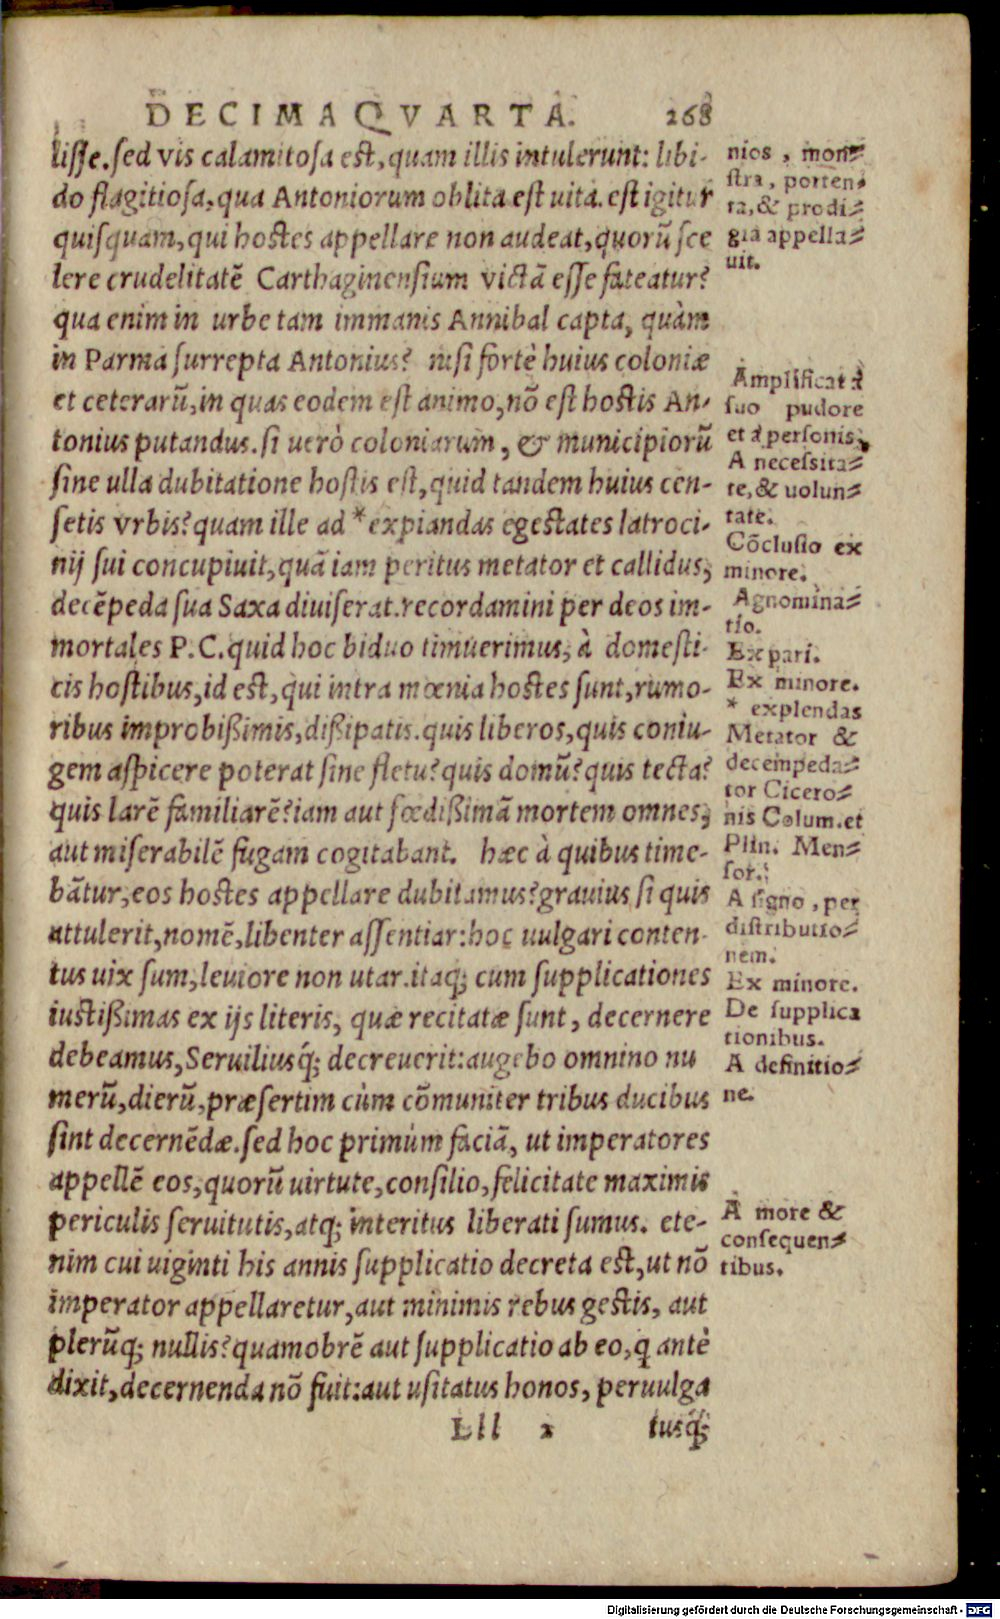 DECIMAQVARTA. 268
lisse. sed vis calamitosa est, quam illis intulerunt: libi-
do flagitiosa, qua Antoniorum oblita est uita. est igitur
quisquam, qui hostes appellare non audeat, quorũ sce
lere crudelitatẽ Carthaginensium victã esse fateatur?
qua enim in urbe tam immanis Annibal capta, quàm
in Parma surrepta Antonius? nisi fortè huius coloniæ
et ceterarũ, in quas eodem est animo, nõ est hostis An-
tonius putandus. si uerò coloniarum, & municipiorũ
sine ulla dubitatione hostis est, quid tandem huius cen-
setis vrbis? quam ille ad * expiandas egestates latroci-
nij sui concupiuit, quã iam peritus metator et callidus,
decẽpeda sua Saxa diuiserat. recordamini per deos im-
mortales P. C. quid hoc biduo timuerimus, à domesti-
cis hostibus, id est, qui intra mœnia hostes sunt, rumo-
ribus improbißimis, dißipatis. quis liberos, quis coniu-
gem aspicere poterat sine fletu? quis domũ? quis tecta?
quis larẽ familiarẽ? iam aut fœdißimã mortem omnes,
aut miserabilẽ fugam cogitabant. hæc à quibus time-
bãtur, eos hostes appellare dubitamus? grauius si quis
attulerit, nomẽ, libenter assentiar: hoc uulgari conten-
tus uix sum, leuiore non utar. itaq; cum supplicationes
iustißimas ex ijs literis, quæ recitatæ sunt, decernere
debeamus, Seruiliusq́; decreuerit: augebo omnino nu
merũ, dierũ, præsertim cùm cõmuniter tribus ducibus
sint decernẽdæ. sed hoc primùm faciã, ut imperatores
appellẽ eos, quorũ uirtute, consilio, felicitate maximis
periculis seruitutis, atq; interitus liberati sumus. ete-
nim cui uiginti his annis supplicatio decreta est, ut nõ
imperator appellaretur, aut minimis rebus gestis, aut
plerũq; nullis? quamobrẽ aut supplicatio ab eo, q antè
dixit, decernenda nõ fuit: aut usitatus honos, peruulga
Lll 2 tusq́;
nios, mon-
stra, porten-
ta, & prodi-
gia appella-
uit.
Amplificat à
suo pudore
et à personis,
A necessita-
te, & uolun-
tate.
Cõclusio ex
minore.
Agnomina-
tio.
Ex pari.
Ex minore.
* explendas
Metator &
decempeda-
tor Cicero-
nis Colum. et
Plin. Men-
sor.
A signo, per
distributio-
nem.
Ex minore.
De supplica
tionibus.
A definitio-
ne.
A more &
consequen-
tibus.
Digitalisierung gefördert durch die Deutsche Forschungsgemeinschaft - DFG